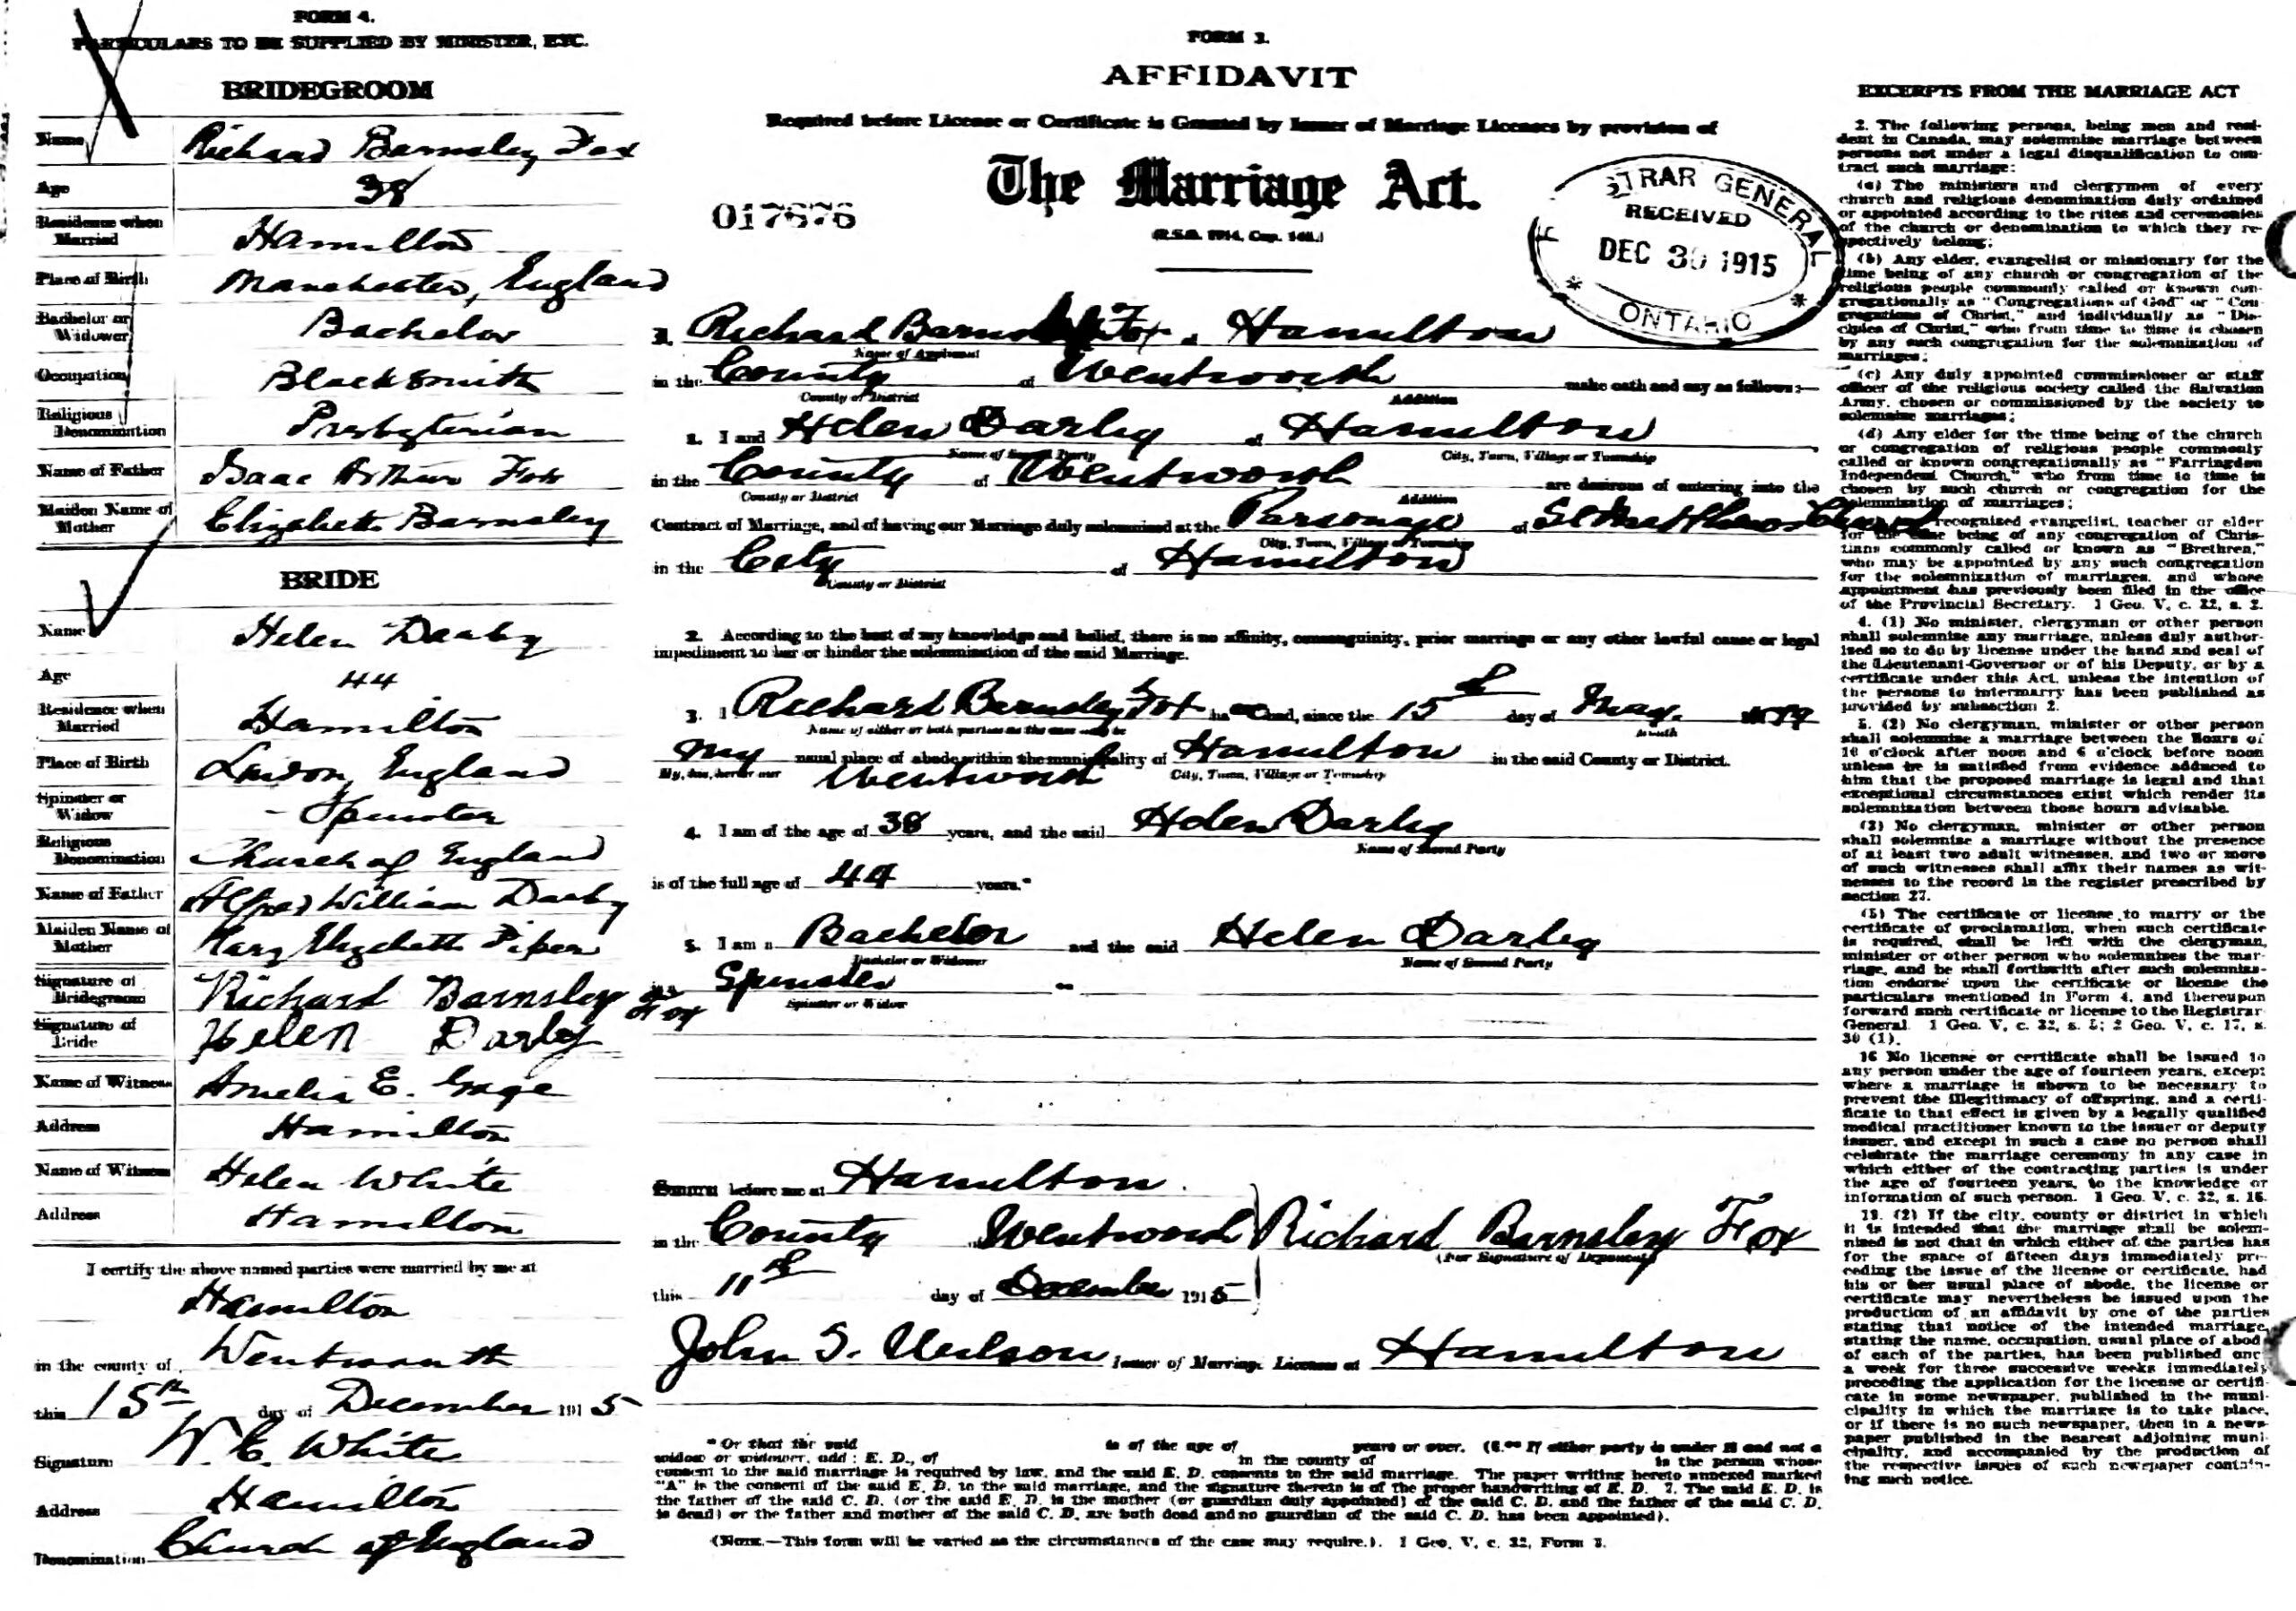 FORM 4.
PARTICULARS TO BE SUPPLIED BY MINISTER, ETC.
BRIDEGROOM
Name Richard Barnsley Fox
Age 38
Residence when Married Hamilton
Place of Birth Manchester, England
Bachelor or Widower Bachelor
Occupation Blacksmith
Religious Denomination Presbyterian
Name of Father Isaac Arthur Fox
Maiden Name of Mother Elizabeth Barnsley
BRIDE
Name Helen Darby
Age 44
Residence when Married Hamilton
Place of Birth London, England
Spinster or Widow Spinster
Religious Denomination Church of England
Name of Father Alfred William Darby
Maiden Name of Mother Mary Elizabeth Piper
Signature of Bridegroom Richard Barnsley Fox
Signature of Bride Helen Darby
Name of Witness Amelia E. Gage
Address Hamilton
Name of Witness Helen White
Address Hamilton
I certify the above named parties were married by me at
Hamilton
in the county of Wentworth
this 15th day of December 1915
Signature W. E. White
Address Hamilton
Denomination Church of England
FORM 3.
AFFIDAVIT
Required before License or Certificate is Granted by Issuer of Marriage Licenses by provision of
The Marriage Act.
017676
(R.S.O. 1914, Cap. 148.)
REGISTRAR GENERAL
RECEIVED
DEC 30 1915
* ONTARIO *
I, Richard Barnsley Fox, Hamilton
Name of Applicant
in the County of Wentworth make oath and say as follows:—
County or District Addition
1. I and Helen Darby of Hamilton
Name of Second Party City, Town, Village or Township
in the County of Wentworth are desirous of entering into the
County or District Addition
Contract of Marriage, and of having our Marriage duly solemnized at the Parsonage of St Matthews Church
City, Town, Village or Township
in the City of Hamilton
County or District
2. According to the best of my knowledge and belief, there is no affinity, consanguinity, prior marriage or any other lawful cause or legal
impediment to bar or hinder the solemnization of the said Marriage.
3. I Richard Barnsley Fox had, since the 15th day of May
Name of either or both parties as the case may be Month
my usual place of abode within the municipality of Hamilton in the said County or District.
My, his, her or our City, Town, Village or Township
Wentworth
4. I am of the age of 38 years, and the said Helen Darby
Name of Second Party
is of the full age of 44 years.*
5. I am a Bachelor and the said Helen Darby
Bachelor or Widower Name of Second Party
is a Spinster
Spinster or Widow
Sworn before me at Hamilton
in the County of Wentworth Richard Barnsley Fox
(For Signature of Deponent)
this 11th day of December 1915
John S. Neilson Issuer of Marriage Licenses at Hamilton
* Or that the said is of the age of years or over. (6.** If either party is under 18 and not a
widow or widower, add: E. D., of in the county of is the person whose
consent to the said marriage is required by law, and the said E. D. consents to the said marriage. The paper writing hereto annexed marked
"A" is the consent of the said E. D. to the said marriage, and the signature thereto is of the proper handwriting of E. D. 7. The said E. D. is
the father of the said C. D. (or the said E. D. is the mother (or guardian duly appointed) of the said C. D. and the father of the said C. D.
is dead) or the father and mother of the said C. D. are both dead and no guardian of the said C. D. has been appointed).
(Note.—This form will be varied as the circumstances of the case may require.). 1 Geo. V. c. 32, Form 3.
EXCERPTS FROM THE MARRIAGE ACT
2. The following persons, being men and resi-
dent in Canada, may solemnize marriage between
persons not under a legal disqualification to con-
tract such marriage:
(a) The ministers and clergymen of every
church and religious denomination duly ordained
or appointed according to the rites and ceremonies
of the church or denomination to which they re-
spectively belong;
(b) Any elder, evangelist or missionary for the
time being of any church or congregation of the
religious people commonly called or known con-
gregationally as "Congregations of God" or "Con-
gregations of Christ," and individually as "Dis-
ciples of Christ," who from time to time is chosen
by any such congregation for the solemnization of
marriages;
(c) Any duly appointed commissioner or staff
officer of the religious society called the Salvation
Army, chosen or commissioned by the society to
solemnize marriages;
(d) Any elder for the time being of the church
or congregation of religious people commonly
called or known congregationally as "Farringdon
Independent Church," who from time to time is
chosen by such church or congregation for the
solemnization of marriages;
recognized evangelist, teacher or elder
for the time being of any congregation of Chris-
tians commonly called or known as "Brethren,"
who may be appointed by any such congregation
for the solemnization of marriages, and whose
appointment has previously been filed in the office
of the Provincial Secretary. 1 Geo. V. c. 32, s. 2.
4. (1) No minister, clergyman or other person
shall solemnize any marriage, unless duly author-
ised so to do by license under the hand and seal of
the Lieutenant-Governor or of his Deputy, or by a
certificate under this Act, unless the intention of
the persons to intermarry has been published as
provided by subsection 2.
5. (2) No clergyman, minister or other person
shall solemnize a marriage between the hours of
10 o'clock after noon and 6 o'clock before noon
unless he is satisfied from evidence adduced to
him that the proposed marriage is legal and that
exceptional circumstances exist which render its
solemnization between those hours advisable.
(3) No clergyman, minister or other person
shall solemnize a marriage without the presence
of at least two adult witnesses, and two or more
of such witnesses shall affix their names as wit-
nesses to the record in the register prescribed by
section 27.
(5) The certificate or license to marry or the
certificate of proclamation, when such certificate
is required, shall be left with the clergyman,
minister or other person who solemnizes the mar-
riage, and he shall forthwith after such solemniza-
tion endorse upon the certificate or license the
particulars mentioned in Form 4, and thereupon
forward such certificate or license to the Registrar
General. 1 Geo. V, c. 32, s. 5; 2 Geo. V, c. 17, s.
30 (1).
16 No license or certificate shall be issued to
any person under the age of fourteen years, except
where a marriage is shown to be necessary to
prevent the illegitimacy of offspring, and a certi-
ficate to that effect is given by a legally qualified
medical practitioner known to the issuer or deputy
issuer, and except in such a case no person shall
celebrate the marriage ceremony in any case in
which either of the contracting parties is under
the age of fourteen years, to the knowledge or
information of such person. 1 Geo. V, c. 32, s. 16.
19. (2) If the city, county or district in which
it is intended that the marriage shall be solem-
nized is not that in which either of the parties has
for the space of fifteen days immediately pre-
ceding the issue of the license or certificate, had
his or her usual place of abode, the license or
certificate may nevertheless be issued upon the
production of an affidavit by one of the parties
stating that notice of the intended marriage,
stating the name, occupation, usual place of abode
of each of the parties, has been published once
a week for three successive weeks immediately
preceding the application for the license or certifi-
cate in some newspaper, published in the muni-
cipality in which the marriage is to take place,
or if there is no such newspaper, then in a news-
paper published in the nearest adjoining muni-
cipality, and accompanied by the production of
the respective issues of such newspaper contain-
ing such notice.